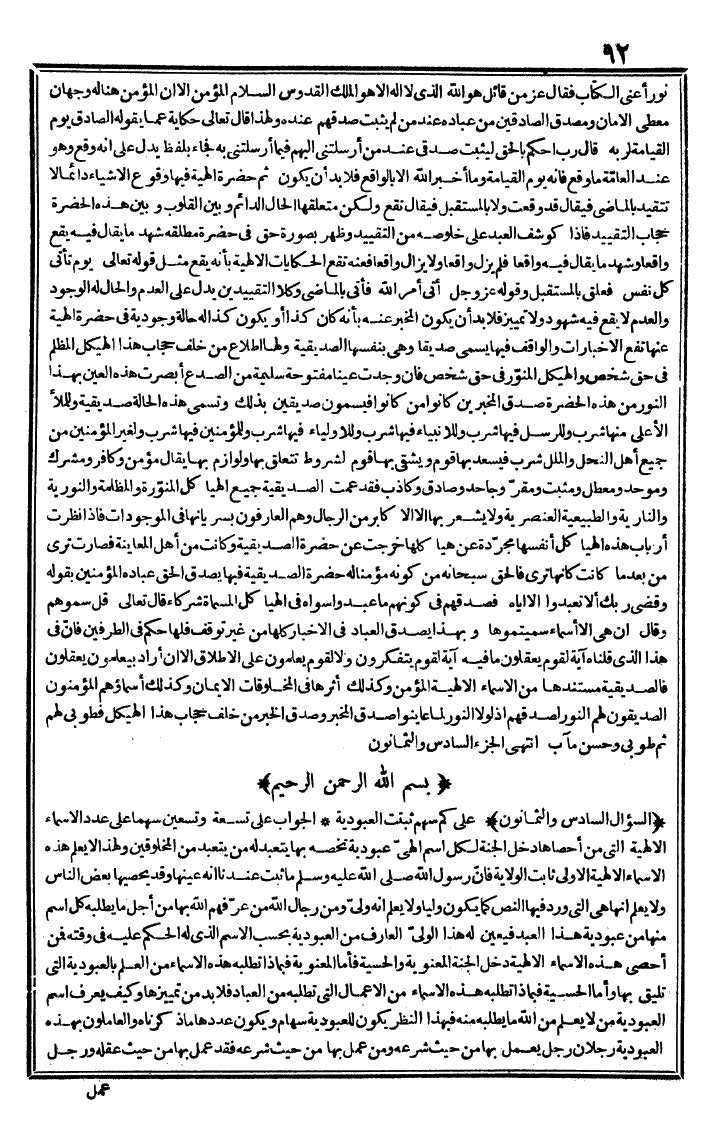 ٩٢
نورا أعنى الكتاب فقال عز من قائل هو الله الذى لا اله الا هو الملك القدوس السلام المؤمن الا ان المؤمن هنا له وجهان
معطى الامان ومصدق الصادقين من عباده عند من لم يثبت صدقهم عنده ولهذا قال تعالى حكاية عما يقوله الصادق يوم
القيامة لربه قال رب احكم بالحق ليثبت صدقى عند من أرسلتنى اليهم فيما أرسلتنى به فجاء بلفظ يدل على انه وقع وهو
عند العامّة ما وقع فانه يوم القيامة وما أخبر الله الا بالواقع فلا بد أن يكون ثم حضرة الهية فيها وقوع الاشياء دائما لا
تتقيد بالماضى فيقال قد وقعت ولا بالمستقبل فيقال تقع ولكن متعلقها الحال الدائم و بين القلوب و بين هذه الحضرة
حجاب التقييد فاذا كوشف العبد على خلوصه من التقييد وظهر بصورة حق فى حضرة مطلقه شهد ما يقال فيه يقع
واقعا وشهد ما يقال فيه واقعا فلم يزل واقعا ولا يزال واقعا فعنه تقع الحكايات الالهية بأنه يقع مثل قوله تعالى يوم تأتى
كل نفس فعلق بالمستقبل وقوله عز وجل أتى أمر الله فأتى بالماضى وكلا التقييدين يدل على العدم والحال له الوجود
والعدم لا يقع فيه شهود ولا تمييز فلا بد أن يكون المخبر عنه بأنه كان كذا أو يكون كذا له حالة وجودية فى حضرة الهية
عنها تقع الاخبارات والواقف فيها يسمى صديقا وهى بنفسها الصديقية ولها اطلاع من خلف حجاب هذا الهيكل المظلم
فى حق شخص والهيكل المنوّر فى حق شخص فان وجدت عينا مفتوحة سليمة من الصدع أبصرت هذه العين بهذا
النور من هذه الحضرة صدق المخبرين كانوا من كانوا فيسمون صديقين بذلك وتسمى هذه الحالة صديقية وللملأ
الأعلى منها شرب وللرسل فيها شرب وللانبياء فيها شرب وللاولياء فيها شرب وللمؤمنين فيها شرب ولغير المؤمنين من
جميع أهل النحل والملل شرب فيسعد بها قوم ويشقى بها قوم لشروط تتعلق بها ولوازم بها يقال مؤمن وكافر ومشرك
وموحد ومعطل ومثبت ومقرّ وجاحد وصادق وكاذب فقد عمت الصديقية جميع الهيا كل المنوّرة والمظلمة والنورية
والنارية والطبيعية العنصرية ولا يشعر بها الا الا كابر من الرجال وهم العارفون بسريانها فى الموجودات فاذا نظرت
أرباب هذه الهيا كل أنفسها مجرّدة عن هيا كلها خرجت عن حضرة الصديقية وكانت من أهل المعاينة فصارت ترى
من بعد ما كانت كانها ترى فالحق سبحانه من كونه مؤمنا له حضرة الصديقية فبها يصدق الحق عباده المؤمنين بقوله
وقضى ربك ألا تعبدوا الا اياه فصدقهم فى كونهم ما عبدوا سواه فى الهيا كل المسماة شركاء قال تعالى قل سموهم
وقال ان هى الا أسماء سميتموها و بهذا يصدق العباد فى الاخبار كلها من غير توقف فلها حكم فى الطرفين فانّ فى
هذا الذى قلناه آية لقوم يعقلون ما فيه آية لقوم يتفكرون ولا لقوم يعلمون على الاطلاق الا ان أراد بيعلمون يعقلون
فالصديقية مستندها من الاسماء الالهية المؤمن وكذلك أثرها فى المخلوقات الايمان وكذلك أسماؤهم المؤمنون
الصديقون لهم النور لصدقهم اذ لولا النور لما عاينوا صدق المخبر وصدق الخبر من خلف حجاب هذا الهيكل فطوبى لهم
ثم طوبى وحسن مآب انتهى الجزء السادس والثمانون
﴿ بسم الله الرحمن الرحيم ﴾
﴿السؤال السادس والثمانون﴾ على كم سهم ثبتت العبودية * الجواب على تسعة وتسعين سهما على عدد الاسماء
الالهية التى من أحصاها دخل الجنة لكل اسم الهىّ عبودية تخصه بها يتعبد له من يتعبد من المخلوقين ولهذا لا يعلم هذه
الاسماء الالهية الا ولى ثابت الولاية فانّ رسول الله صلى الله عليه وسلم ما ثبت عندنا انه عينها وقد يحصيها بعض الناس
ولا يعلم انها هى التى ورد فيها النص كما يكون وليا ولا يعلم انه ولىّ ومن رجال الله من عرّفهم الله بها من أجل ما يطلبه كل اسم
منها من عبودية هذا العبد فيعين له هذا الولىّ العارف من العبودية بحسب الاسم الذى له الحكم عليه فى وقته فمن
أحصى هذه الاسماء الالهية دخل الجنة المعنوية والحسية فأما المعنوية فبما ذا تطلبه هذه الاسماء من العلم بالعبودية التى
تليق بها وأما الحسية فبما ذا تطلبه هذه الاسماء من الاعمال التى تطلبه من العباد فلا بد من تمييزها وكيف يعرف اسم
العبودية من لا يعلم من الله ما يطلبه منه فبهذا النظر يكون للعبودية سهام و يكون عددها ما ذ كرناه والعاملون بهذه
العبودية رجلان رجل يعمل بها من حيث شرعه ومن عمل بها من حيث شرعه فقد عمل بها من حيث عقله ورجل
عمل